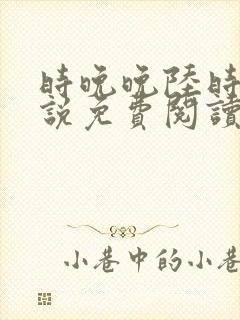 時晚晚陸時
說免費閱讀
小巷中的小巷